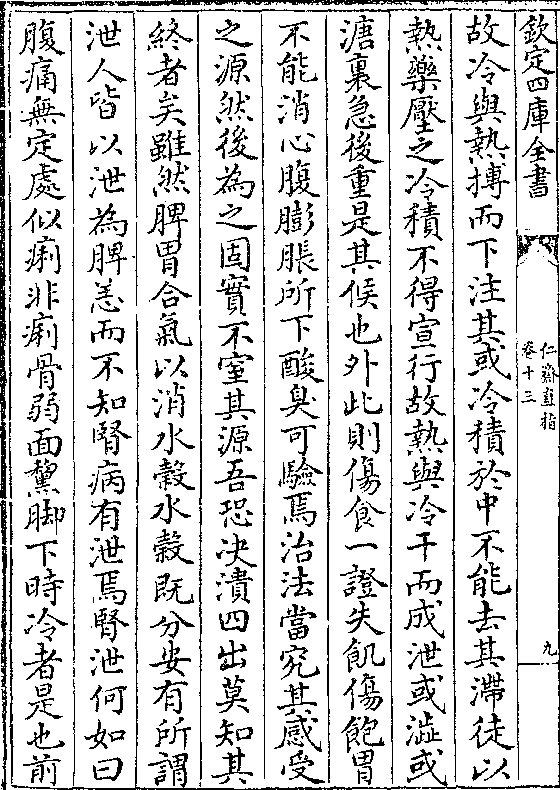 欽定四庫全書
仁齋直指
卷十三
九
故冷與熱搏而下注其或冷積於中不能去其滯徒以
熱藥壓之冷積不得宣行故熱與冷干而成泄或澁或
溏裏急後重是其候也外此則傷食一證失飢傷飽胃
不能消心腹膨脹所下酸臭可驗焉治法當究其感受
之源然後為之固實不窒其源吾恐決潰四出莫知其
終者矣雖然脾胃合氣以消水榖水榖既分安有所謂
泄人皆以泄為脾恙而不知腎病有泄焉腎泄何如曰
腹痛無定處似痢非痢骨弱面黧脚下時冷者是也前